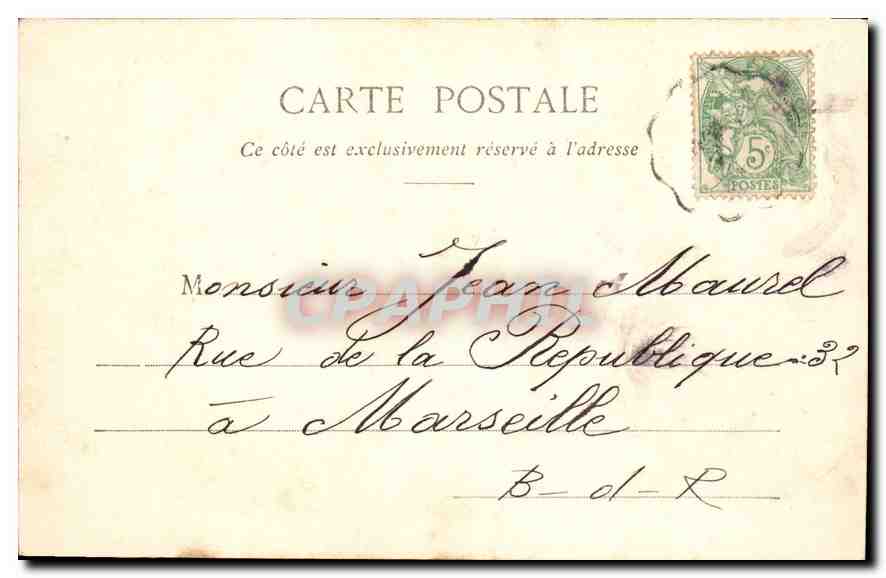 CARTE POSTALE
Ce côté est exclusivement réservé à l'adresse
5c
POSTES
Monsieur Jean Maurel
CPAPHIL
Rue de la République 32
à Marseille
B-d-R